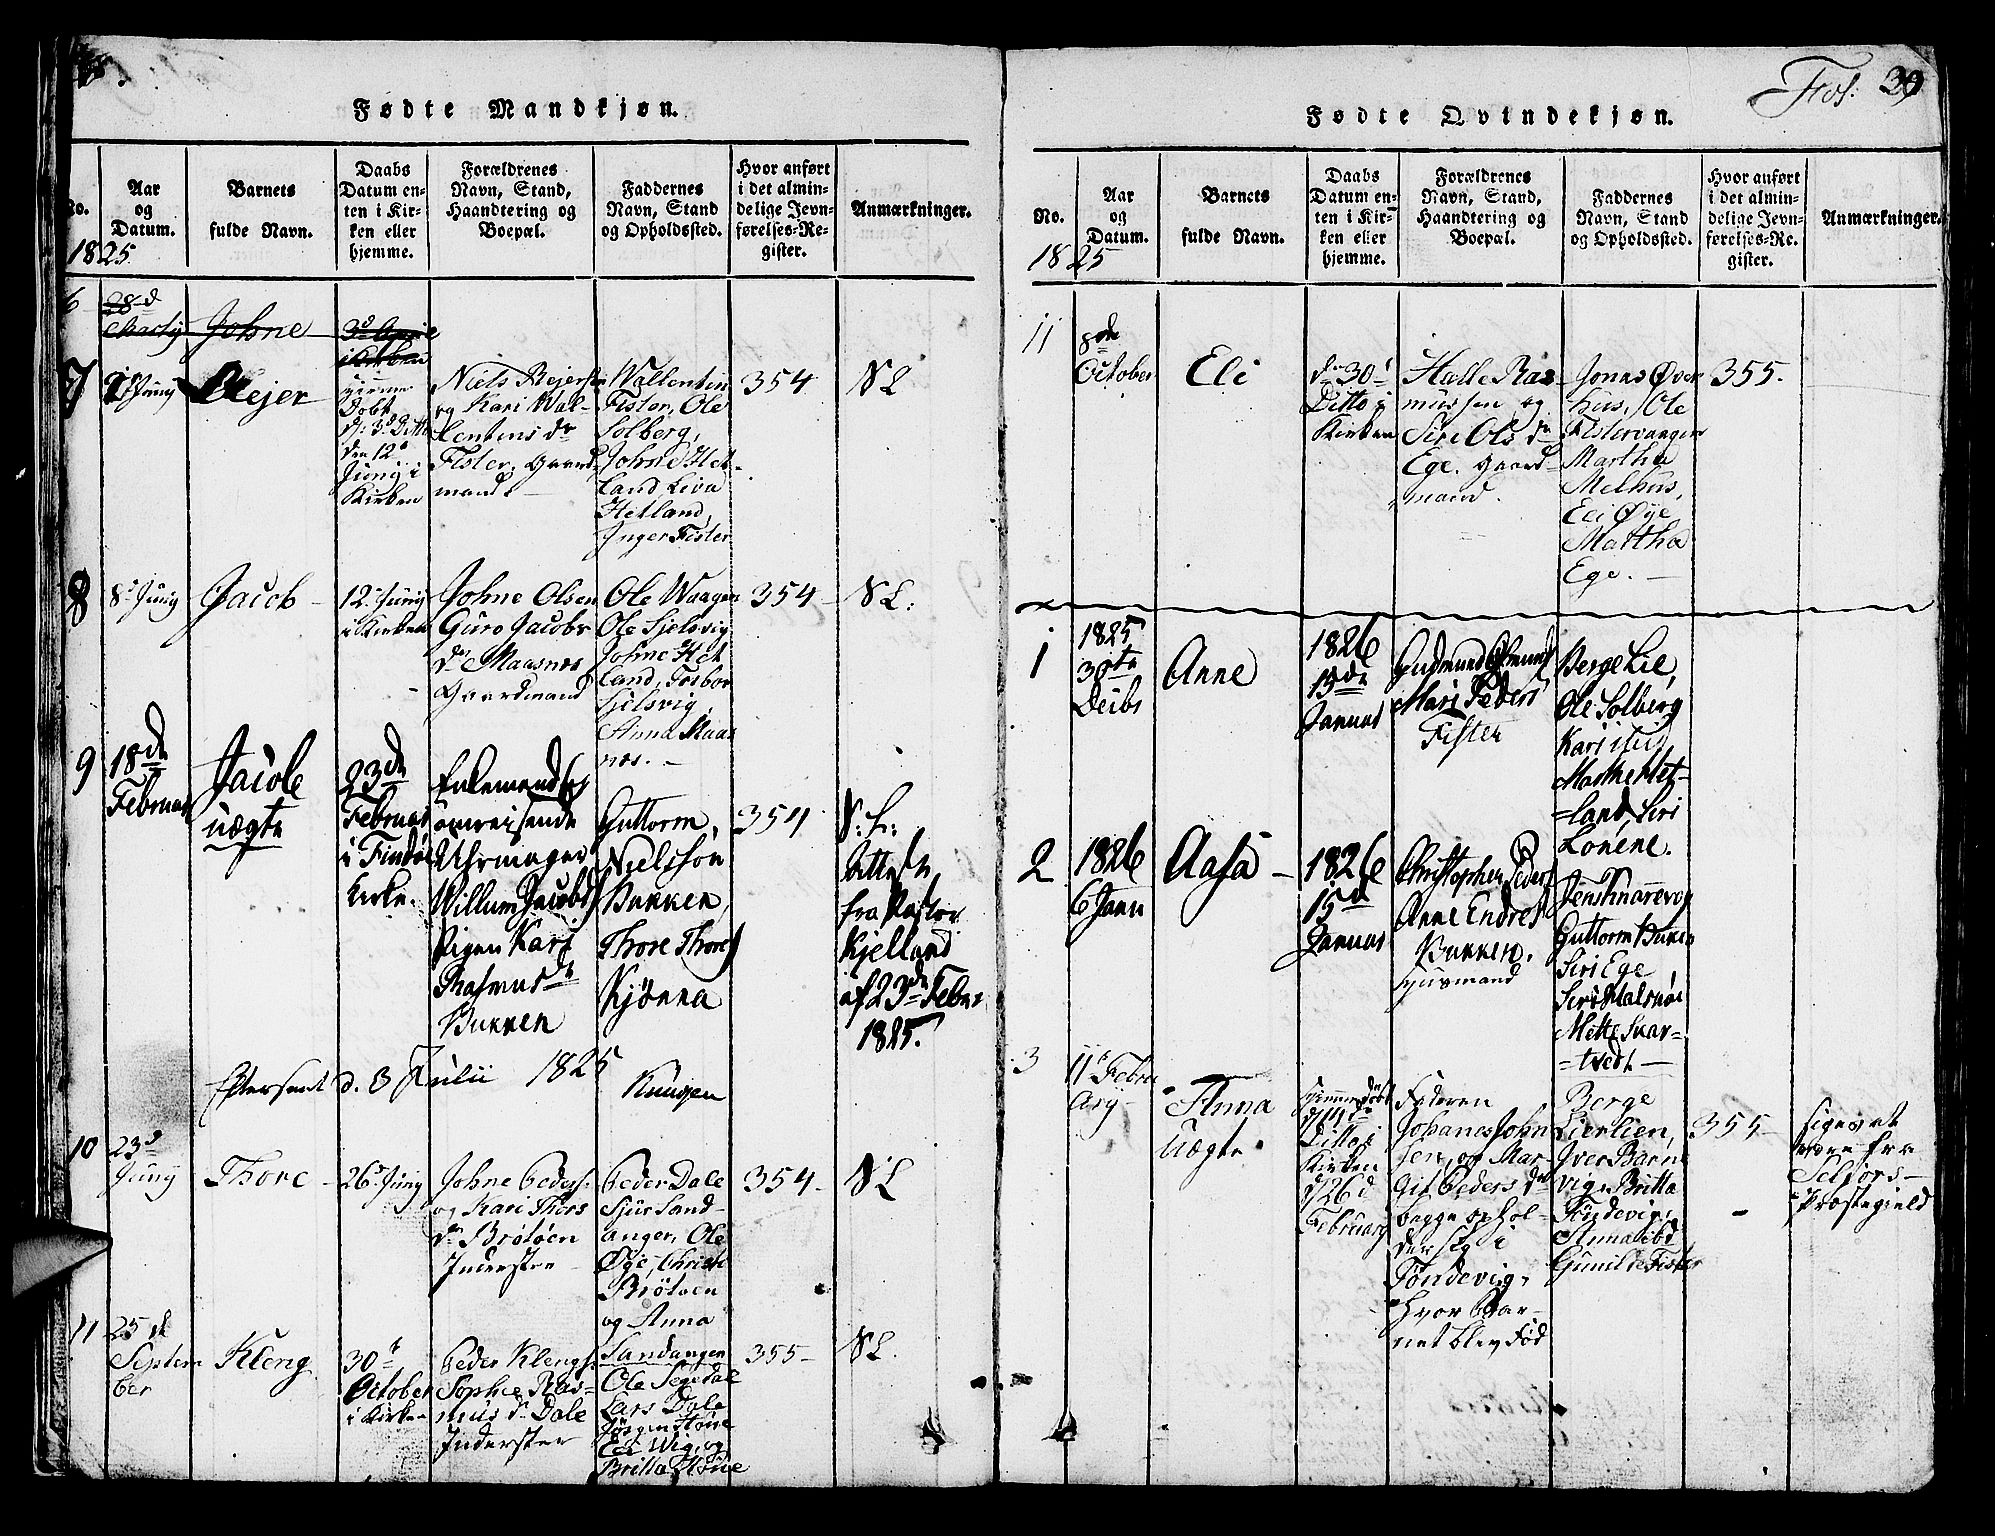 Fødte Mandkjøn.
No.
Aar
og
Datum.
Barnets
fulde Navn.
Daabs
Datum en-
ten i Kir-
ken eller
hjemme.
Forældrenes
Navn, Stand,
Haandtering og
Boepæl.
Faddernes
Navn, Stand
og Opholdssted.
Hvor anført
i det almin-
delige Jevn-
førelses-Re-
gister.
Anmærkninger.
1825
6
28de
Johne
3d April
i Kirken
7
Juny
Rejer
hjemme
Døbt
d. 3d Ditto
den 12te
Juny i
Kirken
Niels Rejersen
og Kari Wal-
lentens dr
Fister, Gaard-
mand.
Wallentin
Fister, Ole
Solberg,
Johne Het-
land Liva
Hetland,
Inger Fister
354
NL
8
8d Juny
Jacob
12 Juny
i Kirken
Johne Olsen
Guro Jacobs
dr Maasnes
Gaardmand
Ole Waagen
Ole Sjelsvig
Johne Het
land, Torbor
Sjelsvig,
Anna Maas
nes.
354
NL:
9
18de
Februar
Jacob
uægte
23de
Februar
i Findø
Kirke.
Enkemand og
omreisende
Uhrmager
Willum Jacobs
Pigen Kari
Rasmusdr
Bukken
Guttorm
Nielsson
Bukken,
Thore Thores
Kjønna
354
N: L:
Attest
fra Pastor
Kjelland
af 23de Febr
1825.
Efterseet d. 3 Julii 1825
10
23d
Juny
Thore
26d Juny
Johne Peders.
og Kari Thors
dr Brøtøen
Inderster
Peder Dale
Sjur Sand-
anger, Ole
Øye, Christi
Brøtøen
og Anna
Sandanger
354
NL
11
25de
Septem
ber
Kleng
30te
October
i Kirken
Peder Klengs.
Sophie Ras-
mus dr Dale
Inderster
Ole Segedal
Lars Dale
Jørgen Høne
Eli Wig, og
Britta Høne
355
NL.
Fol: 39
Fødte Qvindekjøn.
No.
Aar
og
Datum.
Barnets
fulde Navn.
Daabs
Datum en-
ten i Kir-
ken eller
hjemme.
Forældrenes
Navn, Stand,
Haandtering og
Boepæl.
Faddernes
Navn, Stand
og Opholdssted.
Hvor anført
i det almin-
delige Jevn-
førelses-Re-
gister.
Anmærkninger.
1825
11
8de
October
Eli
d. 30d
Ditto i
Kirken
Halle Ras-
mussen og
Siri Ols dr
Ege. Gaard-
mand.
Jonas Øver
hus, Ole
Fistervaagen
Martha
Melhus,
Eli Øye
Martha
Ege.
355.
1
1825
30te
Decbr
Anne
1826
15de
Januar
Gudmund
Mari Peders
Fister
Berge Lie,
Ole Solberg
Kari ibid
Marthe Het-
land, Siri
Lonene.
2
1826
6 Janu
Aasa
1826
15d
Januar
Christopher Peders
Anne Endres
Bukken,
Huusmand
Jens Knarrevog
Guttorm Bukken
Siri Ege
Siri Halsnøe
Mette Svar-
tvedt
3
11te Febru
ary
Anna
Uægte
Hjemmedøbt
Ditto i
Kirken
d 26d
February
Faderen
Johanes John
sen, og Mar-
git Peders dr
begge ophol-
der sig i
Tøndevig,
hvor Bar-
net blev Fød
Berge
Lierlien,
Iver Barne
vig, Britta
Tøndevig,
Anna ibd
Gunilde Fister
355
siges at
være fra
Selfors
Præstegield